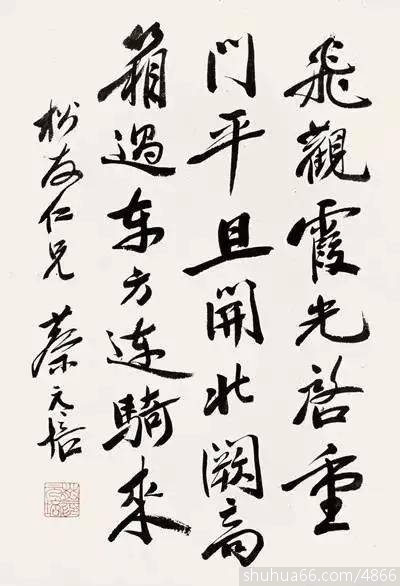 飛觀霞光啓重
門平旦開北闕高
箱過東方連騎來
松友仁兄 蔡元培
shuhua66.com/4866